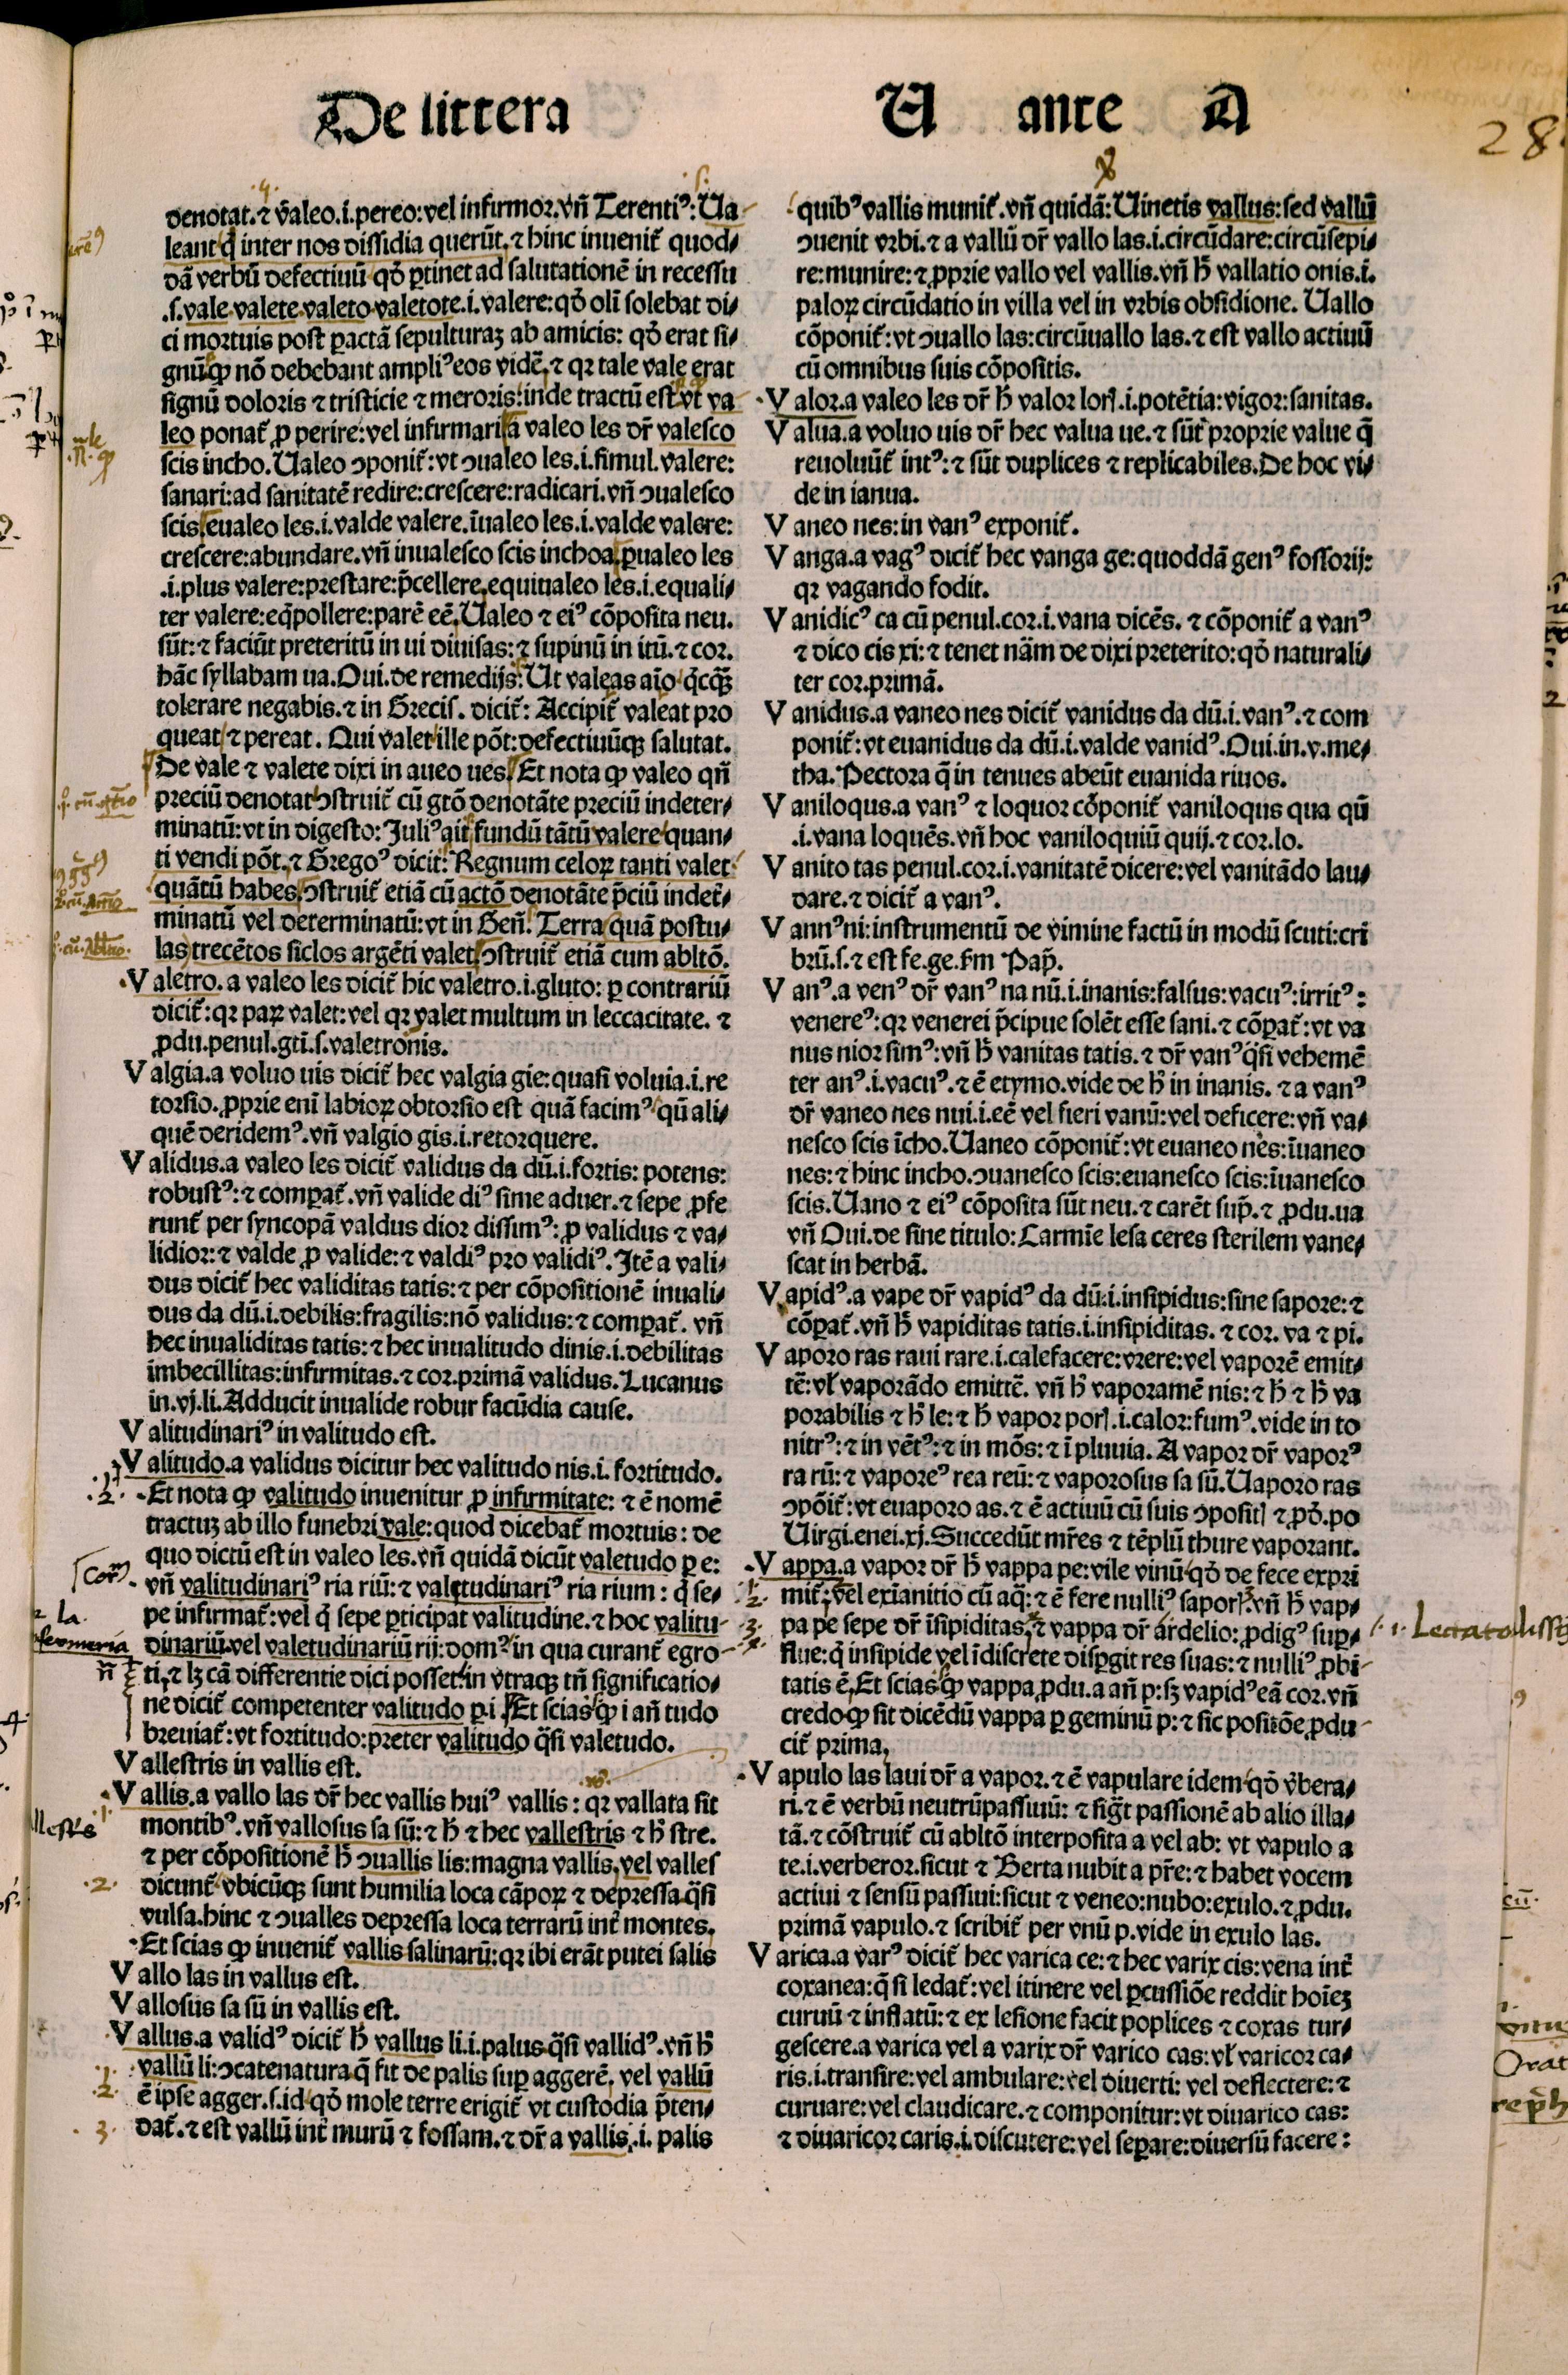 De littera
U ante A
28.
denotat. ⁊ valeo .i. pereo: vel infirmor. vñ Terentiꝰ: Ua
leant q̇ inter nos dissidia querūt. ⁊ hinc inuenit̄ quod⸗
dā verbū defectiuū qđ ꝑtinet ad salutationē in recessu
.s. vale valete valeto valetote .i. valere: qđ oli solebat di⸗
ci mortuis post ꝑactā sepulturaꝫ ab amicis: qđ erat si⸗
gnū ꝙ nō debebant ampliꝰ eos vidē. ⁊ qꝛ tale vale erat
signū doloris ⁊ tristicie ⁊ meroris: inde tractū est vt va
leo ponat̄ ꝓ perire: vel infirmari a valeo les dr̄ valesco
scis incho. Ualeo ↄponit̄: vt ↄualeo les .i. simul valere:
sanari: ad sanitatē redire: crescere: radicari. vñ ↄualesco
scis. eualeo les .i. valde valere. īualeo les .i. valde valere:
crescere: abundare. vñ inualesco scis inchoa. ꝑualeo les
.i. plus valere: prestare: p̄cellere. equiualeo les .i. equali⸗
ter valere: eq̇pollere: parē eē. Ualeo ⁊ eiꝰ cōposita neu.
sūt: ⁊ faciūt preteritū in ui diuisas: ⁊ supinū in itū. ⁊ cor.
hāc syllabam ua. Oui. de remedijs: Ut valeas aīo q̇cq̄ꝫ
tolerare negabis. ⁊ in Grecis. dicit̄: Accipit̄ valeat pro
queat ⁊ pereat. Qui valet ille pōt: defectiuūqꝫ salutat.
De vale ⁊ valete dixi in aueo ues. Et nota ꝙ valeo qñ
preciū denotat ↄstruit̄ cū gtō denotāte preciū indeter⸗
minatū: vt in digesto: Juliꝰ ait fundū tātū valere quan⸗
ti vendi pōt. ⁊ Gregoꝰ dicit: Regnum celoꝝ tanti valet
quātū habes. ↄstruit̄ etiā cū actō denotāte p̄ciū indet̄⸗
minatū vel determinatū: vt in Geñ. Terra quā postu⸗
las trecētos siclos argēti valet. ↄstruit̄ etiā cum abltō.
Valetro. a valeo les dicit̄ hic valetro .i. gluto: ꝑ contrariū
dicit̄: qꝛ paꝝ valet: vel qꝛ valet multum in leccacitate. ⁊
ꝓdu. penul. gtī. s. valetronis.
Valgia. a voluo uis dicit̄ hec valgia gie: quasi voluia .i. re
torsio. ꝓprie eni labioꝝ obtorsio est quā facimꝰ qū ali⸗
quē deridemꝰ. vñ valgio gis .i. retorquere.
Validus. a valeo les dicit̄ validus da dū .i. fortis: potens:
robustꝰ: ⁊ comꝑat̄. vñ valide diꝰ sime aduer. ⁊ sepe ꝓfe
runt̄ per syncopā valdus dior dissimꝰ: ꝓ validus ⁊ va⸗
lidior: ⁊ valde ꝓ valide: ⁊ valdiꝰ pro validiꝰ. Itē a vali⸗
dus dicit̄ hec validitas tatis: ⁊ per cōpositionē inuali⸗
dus da dū .i. debilis: fragilis: nō validus: ⁊ comꝑat̄. vñ
hec inualiditas tatis: ⁊ hec inualitudo dinis .i. debilitas
imbecillitas: infirmitas. ⁊ cor. primā validus. Lucanus
in. vj. li. Adducit inualide robur facūdia cause.
Valitudinariꝰ in valitudo est.
Valitudo. a validus dicitur hec valitudo nis .i. fortitudo.
Et nota ꝙ valitudo inuenitur ꝓ infirmitate: ⁊ ē nomē
tractuꝫ ab illo funebri vale: quod dicebat̄ mortuis: de
quo dictū est in valeo les. vñ quidā dicūt valetudo ꝑ e:
vñ valitudinariꝰ ria riū: ⁊ valetudinariꝰ ria rium: q̇ se⸗
pe infirmat̄: vel q̇ sepe ꝑticipat valitudine. ⁊ hoc valitu⸗
dinariū vel valetudinariū rij: domꝰ in qua curant̄ egro⸗
ti. ⁊ lꝫ cā differentie dici posset: in vtraqꝫ tñ significatio⸗
ne dicit̄ competenter valitudo ꝑ .i. Et scias ꝙ i añ tudo
breuiat̄: vt fortitudo: preter valitudo q̄si valetudo.
Vallestris in vallis est.
Vallis. a vallo las dr̄ hec vallis huiꝰ vallis: qꝛ vallata sit
montibꝰ. vñ vallosus sa sū: ⁊ h̄ ⁊ hec vallestris ⁊ h̄ stre.
⁊ per cōpositionē h̄ ↄuallis lis: magna vallis. vel valles
dicunt̄ vbicūqꝫ sunt humilia loca cāpoꝝ ⁊ depressa q̄si
vulsa. hinc ⁊ ↄualles depressa loca terrarū int̄ montes.
Et scias ꝙ inuenit̄ vallis salinarū: qꝛ ibi erāt putei salis
Vallo las in vallus est.
Vallosus sa sū in vallis est.
Vallus. a validꝰ dicit̄ h̄ vallus li .i. palus q̄si vallidꝰ. vñ h̄
vallū li: ↄcatenatura q̄ fit de palis suꝑ aggerē. vel vallū
ē ipse agger. s. id qđ mole terre erigit̄ vt custodia p̄ten⸗
dat̄. ⁊ est vallū int̄ murū ⁊ fossam. ⁊ dr̄ a vallis .i. palis
quibꝰ vallis munit̄. vñ quidā: Uinetis vallus: sed vallū
ↄuenit vrbi. ⁊ a vallū dr̄ vallo las .i. circūdare: circūsepi⸗
re: munire: ⁊ ꝓprie vallo vel vallis. vñ h̄ vallatio onis .i.
paloꝝ circūdatio in villa vel in vrbis obsidione. Uallo
cōponit̄: vt ↄuallo las: circūuallo las. ⁊ est vallo actiuū
cū omnibus suis cōpositis.
Valor. a valeo les dr̄ h̄ valor lorꝭ .i. potētia: vigor: sanitas.
Valua. a voluo uis dr̄ hec valua ue. ⁊ sūt proprie value q̄
reuoluūt̄ intꝰ: ⁊ sūt duplices ⁊ replicabiles. De hoc vi⸗
de in ianua.
Vaneo nes: in vanꝰ exponit̄.
Vanga. a vagꝰ dicit̄ hec vanga ge: quoddā genꝰ fossorij:
qꝛ vagando fodit.
Vanidicꝰ ca cū penul. cor .i. vana dicēs. ⁊ cōponit̄ a vanꝰ
⁊ dico cis xi: ⁊ tenet nām de dixi preterito: qđ naturali⸗
ter cor. primā.
Vanidus. a vaneo nes dicit̄ vanidus da dū .i. vanꝰ. ⁊ com
ponit̄: vt euanidus da dū .i. valde vanidꝰ. Oui. in. v. me⸗
tha. Pectora q̄ in tenues abeūt euanida riuos.
Vaniloqus. a vanꝰ ⁊ loquor cōponit̄ vaniloqus qua qū
.i. vana loquēs. vñ hoc vaniloquiū quij. ⁊ cor. lo.
Vanito tas penul. cor .i. vanitatē dicere: vel vanitādo lau⸗
dare. ⁊ dicit̄ a vanꝰ.
Vannꝰ ni: instrumentū de vimine factū in modū scuti: cri
brū. s. ⁊ est fe. ge. fm Pap̄.
Vanꝰ. a venꝰ dr̄ vanꝰ na nū .i. inanis: falsus: vacuꝰ: irritꝰ:
venereꝰ: qꝛ venerei p̄cipue solēt esse sani. ⁊ cōꝑat̄: vt va
nus nior simꝰ: vñ h̄ vanitas tatis. ⁊ dr̄ vanꝰ q̄si vehemē
ter anꝰ .i. vacuꝰ. ⁊ ē etymo. vide de h̄ in inanis. ⁊ a vanꝰ
dr̄ vaneo nes nui .i. eē vel fieri vanū: vel deficere: vñ va⸗
nesco scis īcho. Uaneo cōponit̄: vt euaneo nes: īuaneo
nes: ⁊ hinc incho. ↄuanesco scis: euanesco scis: īuanesco
scis. Uano ⁊ eiꝰ cōposita sūt neu. ⁊ carēt sup̄. ⁊ ꝓdu. ua
vñ Oui. de sine titulo: Carmīe lesa ceres sterilem vane⸗
scat in herbā.
Vapidꝰ. a vape dr̄ vapidꝰ da dū .i. insipidus: sine sapore: ⁊
cōꝑat̄. vñ h̄ vapiditas tatis .i. insipiditas. ⁊ cor. va ⁊ pi.
Vaporo ras raui rare .i. calefacere: vrere: vel vaporē emit⸗
tē: vl̄ vaporādo emittē. vñ h̄ vaporamē nis: ⁊ h̄ ⁊ h̄ va
porabilis ⁊ h̄ le: ⁊ h̄ vapor porꝭ .i. calor: fumꝰ. vide in to
nitrꝰ: ⁊ in vētꝰ: ⁊ in mōs: ⁊ ī pluuia. A vapor dr̄ vaporꝰ
ra rū: ⁊ vaporeꝰ rea reū: ⁊ vaporosus sa sū. Uaporo ras
ↄpōit̄: vt euaporo as. ⁊ ē actiuū cū suis ↄpositꝭ ⁊ ꝓđ. po
Uirgi. enei. xj. Succedūt mr̄es ⁊ tēplū thure vaporant.
Vappa. a vapor dr̄ h̄ vappa pe: vile vinū qđ de fece expri
mit̄: vel exianitio cū aq̄: ⁊ ē fere nulliꝰ saporꝭ. vñ h̄ vap⸗
pa pe sepe dr̄ īsipiditas. ⁊ vappa dr̄ ardelio: ꝓdigꝰ suꝑ⸗
flue: q̇ insipide vel īdiscrete disꝑgit res suas: ⁊ nulliꝰ ꝓbi⸗
tatis ē. Et scias ꝙ vappa ꝓdu. a añ p: sꝫ vapidꝰ eā cor. vñ
credo ꝙ sit dicēdū vappa ꝑ geminū p: ⁊ sic positōe ꝓdu⸗
cit̄ prima.
Vapulo las laui dr̄ a vapor. ⁊ ē vapulare idem qđ v̄bera⸗
ri. ⁊ ē verbū neutrūpassiuū: ⁊ sig̅t passionē ab alio illa⸗
tā. ⁊ cōstruit̄ cū abltō interposita a vel ab: vt vapulo a
te .i. verberor. sicut ⁊ Berta nubit a pr̄e: ⁊ habet vocem
actiui ⁊ sensū passiui: sicut ⁊ veneo: nubo: exulo. ⁊ ꝓdu.
primā vapulo. ⁊ scribit̄ per vnū p. vide in exulo las.
Varica. a varꝰ dicit̄ hec varica ce: ⁊ hec varix cis: vena int̄
coxanea: q̄ si ledat̄: vel itinere vel ꝑcussiōe reddit hoīeꝫ
curuū ⁊ inflatū: ⁊ ex lesione facit poplices ⁊ coxas tur⸗
gescere. a varica vel a varix dr̄ varico cas: vl̄ varicor ca⸗
ris .i. transire: vel ambulare: vel diuerti: vel deflectere: ⁊
curuare: vel claudicare. ⁊ componitur: vt diuarico cas:
⁊ diuaricor caris .i. discutere: vel seꝑare: diuersū facere: